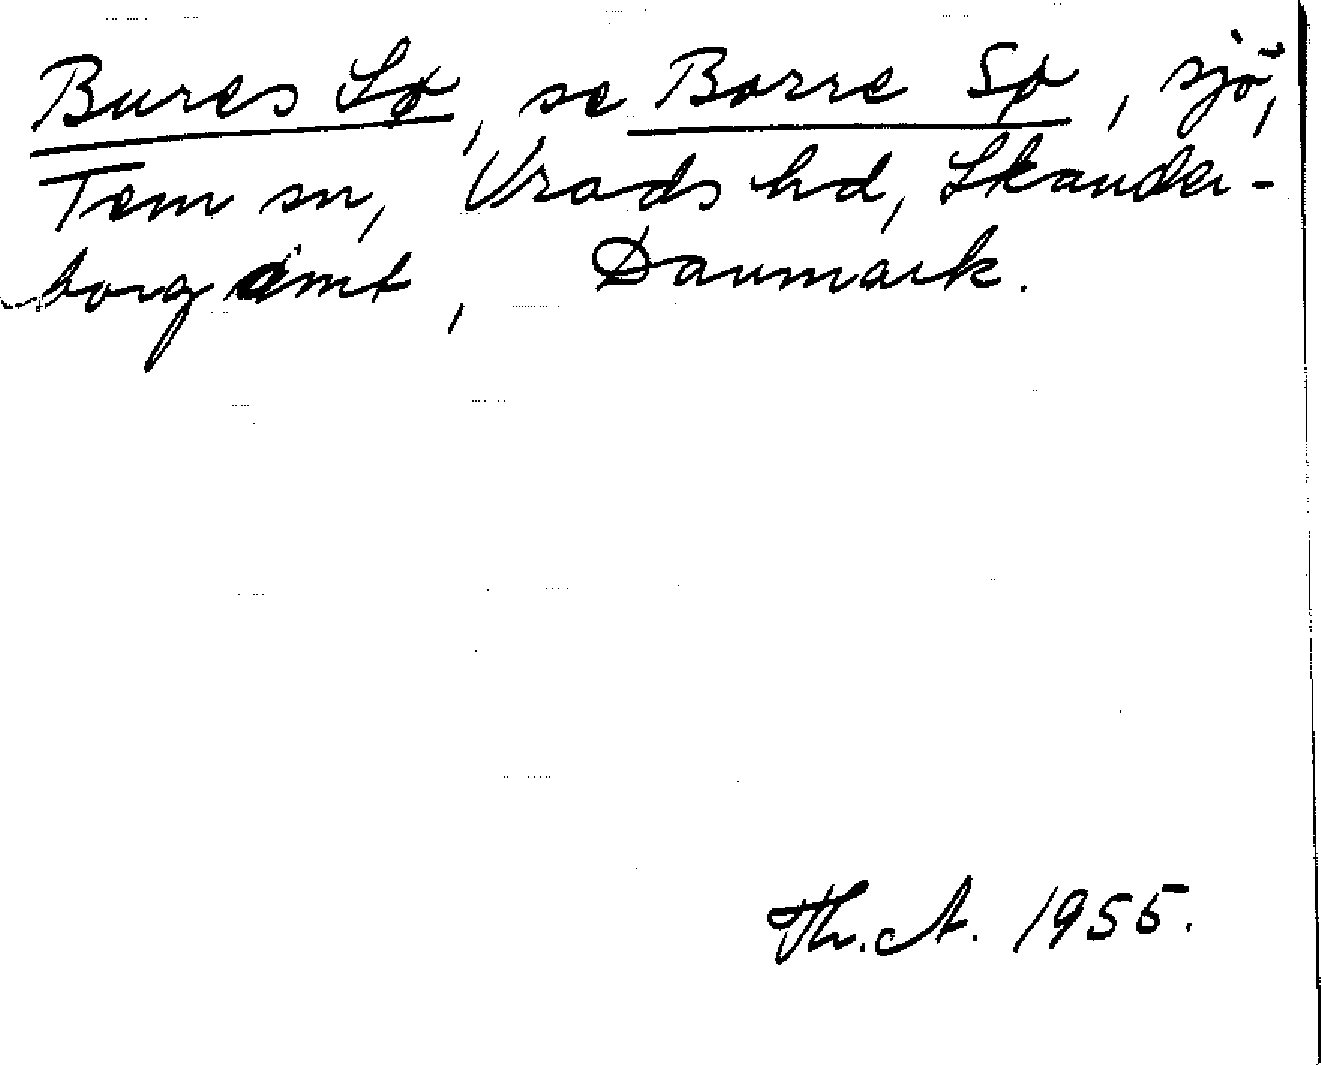 Bures Sø, se Borre Sø, sjö,
Tem sn, Vrads hd, Skander-
borg amt, Danmark.
Th. A. 1955.